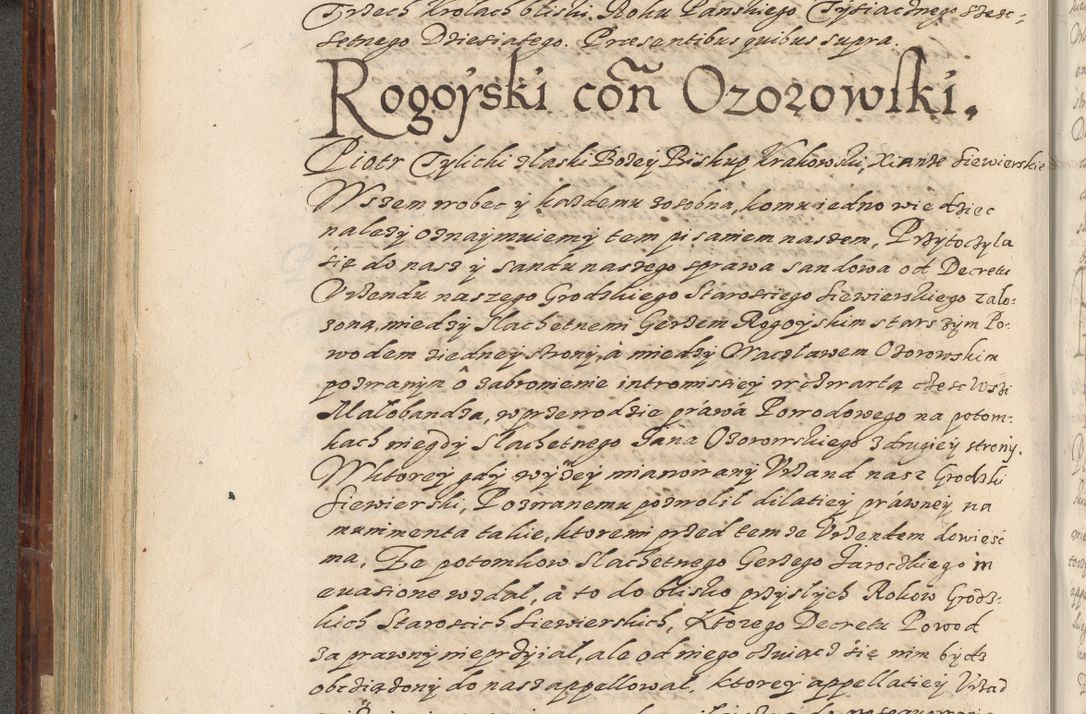 Trzech Krolach bliski. Roku Panskiego Tysiącznego szesc-
setnego Dziesiątego. Præsentibus quibus supra.
Rogoyski con Ozorowski.
Piotr Tylicki z laski Bozey Biskup Krakowski, Xiąnże Siewierskie
Wszem wobec y każdemu zosobna, komu iedno wiedziec
nalezy oznaymuiemy tem pisaniem naszem, Przytoczyla
się do nasz y sandu naszego sprawa sandowa od Decretu
Vrzendu naszego Grodzkiego Starosciego Siewierskiego zalo-
zona, miedzy Slachetnemi Gerzem Rogoyskim starszym Po-
wodem ziedney strony, à miedzy Waczlawem Ozorowskim
pozwanym ô zabronienie intromissiey w czwartą częsc Wsi
Malobandza, w przewodzie práwa Powodowego na potom-
kach niegdy Slachetnego Jana Ozorowskiego z drugiey strony.
W ktorey gdy wyżey mianowany Vrzand nasz Grodzki
Siewierski, Pozwanemu pozwolil dilatiey práwney na
munimenta takie, ktoremi przed temze Vrzendem dowiesć
ma, Ze potomkow Slachetnego Gerzego Jaroczkiego in
euasione wzdal, à to do blisko przyslych Rokow Grodz-
kich Staroscich Siewierskich, Ktorego Decretu Powod
za prawny nieprzyial, ale od niego czuiącz się nim bydz
obcziązony do nasz appellowal, ktorey appellatiey Vrząd